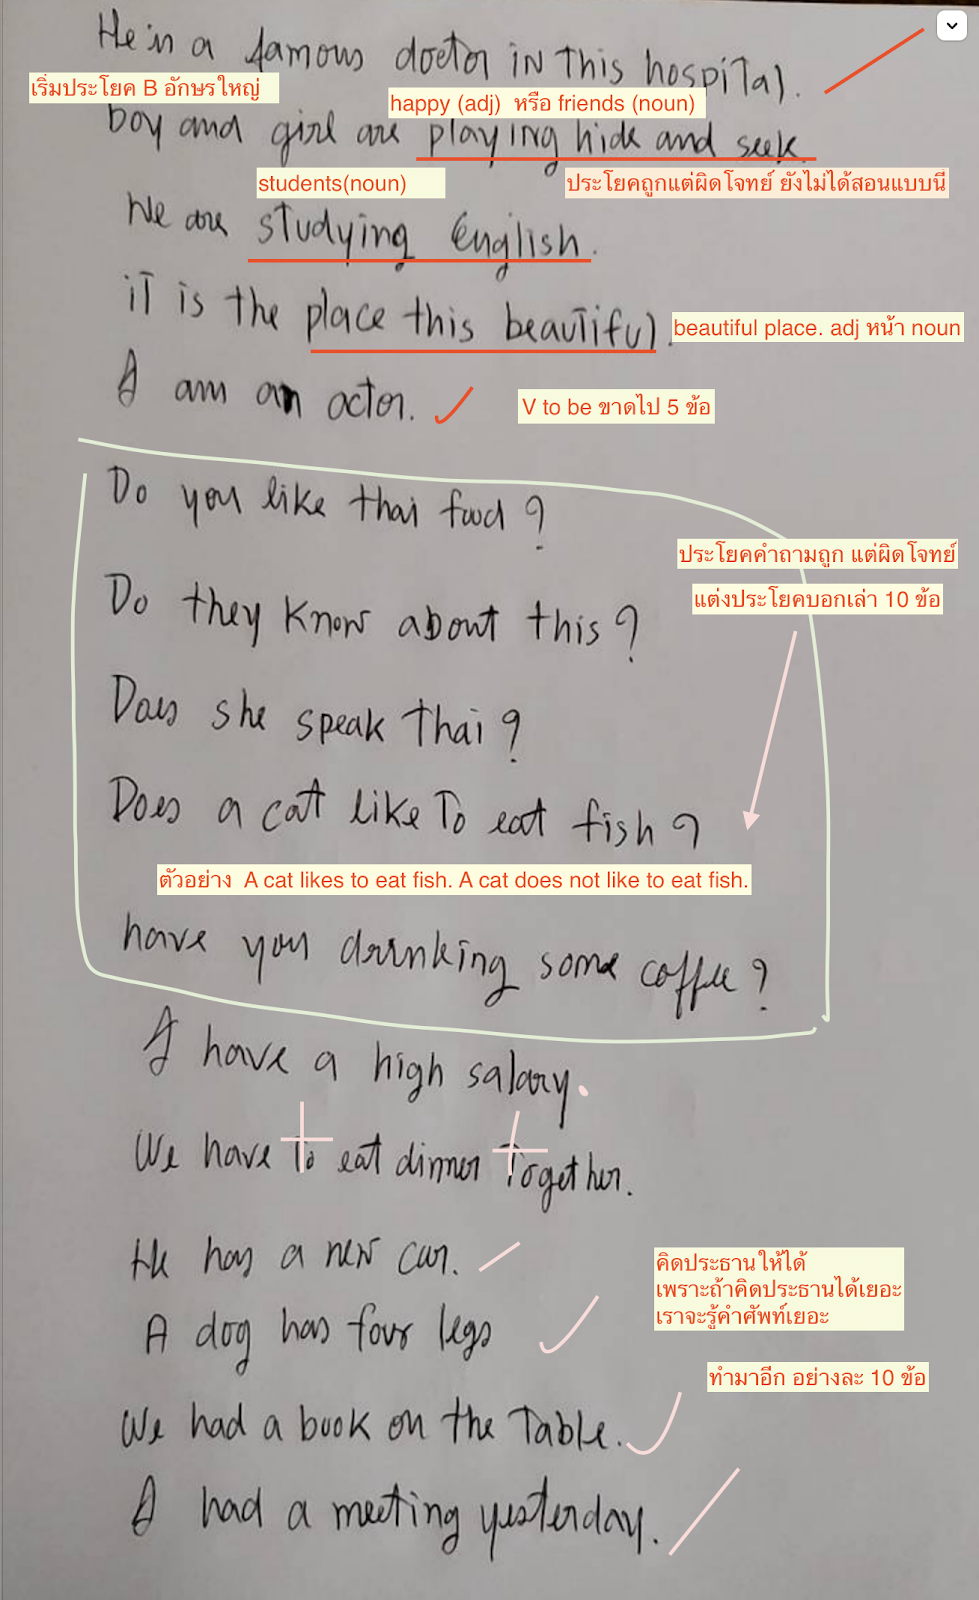 He is a famous doctor in this hospital.
เริ่มประโยค B อักษรใหญ่
happy (adj)  หรือ friends (noun)
boy and girl are playing hide and seek.
students(noun)
ประโยคถูกแต่ผิดโจทย์ ยังไม่ได้สอนแบบนี้
We are studying English.
it is the place this beautiful.
beautiful place. adj หน้า noun
I am an actor.
V to be ขาดไป 5 ข้อ
Do you like thai food ?
ประโยคคำถามถูก แต่ผิดโจทย์
แต่งประโยคบอกเล่า 10 ข้อ
Do they know about this ?
Does she speak thai ?
Does a cat like To eat fish ?
ตัวอย่าง  A cat likes to eat fish. A cat does not like to eat fish.
have you drinking some coffee ?
I have a high salary.
We have To eat dinner Together.
He has a new car.
คิดประธานให้ได้
เพราะถ้าคิดประธานได้เยอะ
เราจะรู้คำศัพท์เยอะ
A dog has four legs
ทำมาอีก อย่างละ 10 ข้อ
We had a book on the Table.
I had a meeting yesterday.